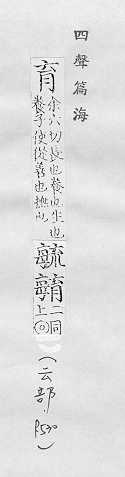 四聲篇海
育
余六切長也養也生也
養子使從善也
同
上二
（云部，P530）